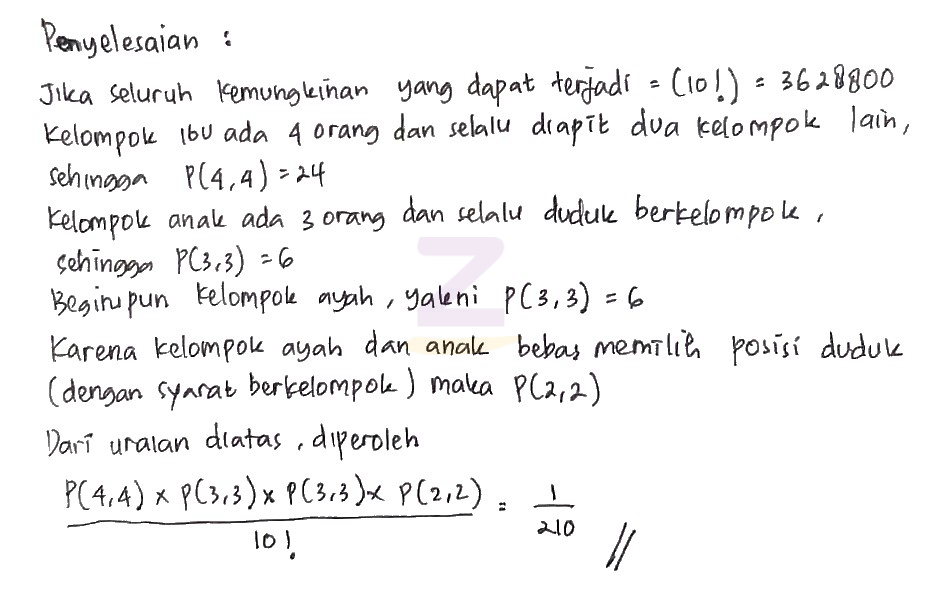 Penyelesaian :
Jika seluruh kemungkinan yang dapat terjadi = (10!) = 3628800
Kelompok ibu ada 4 orang dan selalu diapit dua kelompok lain,
sehingga P(4,4) = 24
Kelompok anak ada 3 orang dan selalu duduk berkelompok,
sehingga P(3,3) = 6
Begitupun kelompok ayah, yakni P(3,3) = 6
Karena kelompok ayah dan anak bebas memilih posisi duduk
(dengan syarat berkelompok) maka P(2,2)
Dari uraian diatas, diperoleh
P(4,4) x P(3,3) x P(3,3) x P(2,2) = 1
10! 210 //
Z